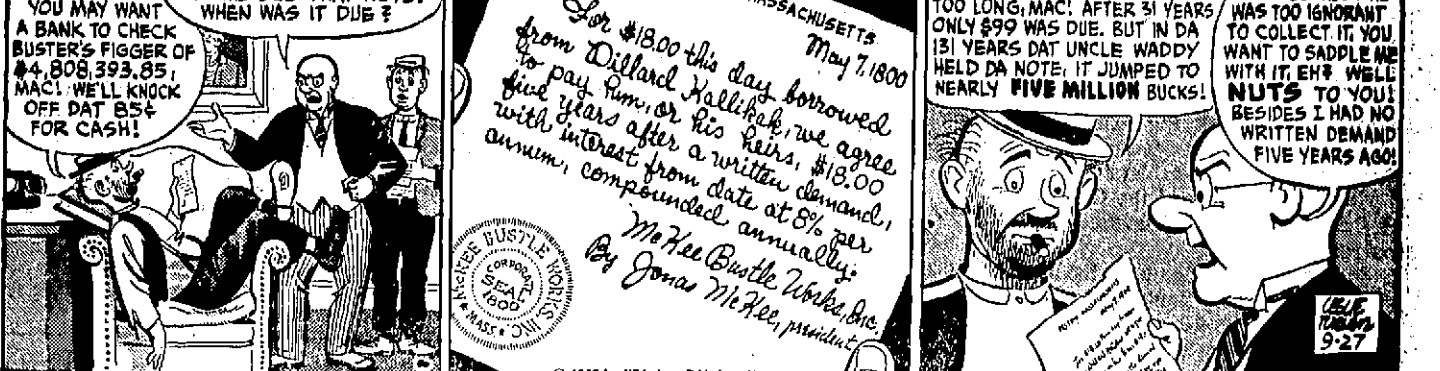 YOU MAY WANT
A BANK TO CHECK
BUSTER'S FIGGER OF
$4,808,393.85,
MAC! WE'LL KNOCK
OFF DAT 85¢
FOR CASH!
WHEN WAS IT DUE?
MASSACHUSETTS
May 7, 1800
For $18.00 this day borrowed
from Dillard Kallikak, we agree
to pay him, or his heirs, $18.00
five years after a written demand,
with interest from date at 8% per
annum, compounded annually.
McKee Bustle Works, Inc.
By Jonas McKee, president
McKEE BUSTLE WORKS, INC.
MASS
CORPORATE
SEAL
1800
TOO LONG, MAC! AFTER 31 YEARS
ONLY $99 WAS DUE. BUT IN DA
131 YEARS DAT UNCLE WADDY
HELD DA NOTE, IT JUMPED TO
NEARLY FIVE MILLION BUCKS!
WAS TOO IGNORANT
TO COLLECT IT. YOU
WANT TO SADDLE ME
WITH IT, EH? WELL
NUTS TO YOU!
BESIDES I HAD NO
WRITTEN DEMAND
FIVE YEARS AGO!
LESLIE
TURNER
9-27